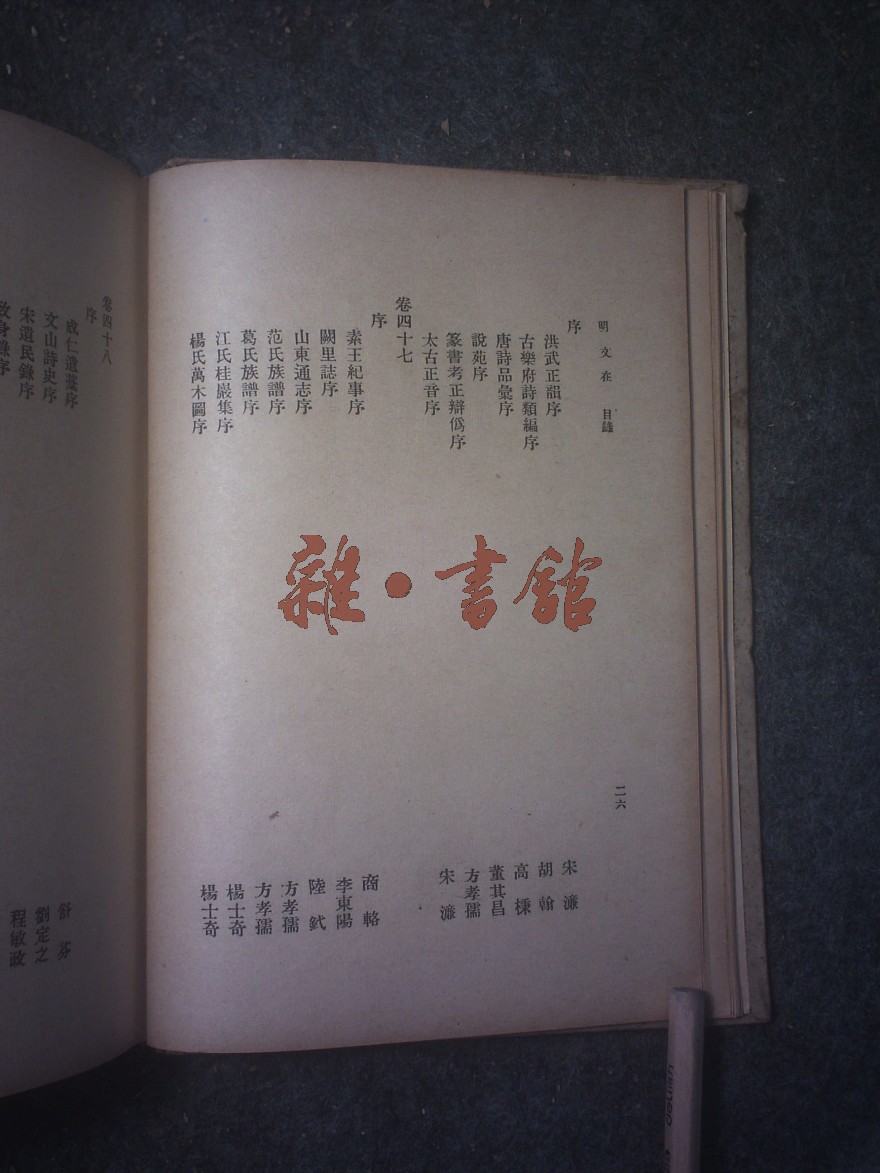 明文在 目錄 二六
序
洪武正韻序 宋濂
古樂府詩類編序 胡翰
唐詩品彙序 高棅
說苑序 董其昌
篆書考正辯僞序 方孝孺
太古正音序 宋濂
卷四十七
序
素王紀事序 商輅
闕里誌序 李東陽
山東通志序 陸釴
范氏族譜序 方孝孺
葛氏族譜序 方孝孺
江氏桂巖集序 楊士奇
楊氏萬木圖序 楊士奇
卷四十八
序
成仁遺藁序 舒芬
文山詩史序 劉定之
宋遺民錄序 程敏政
雜·書館